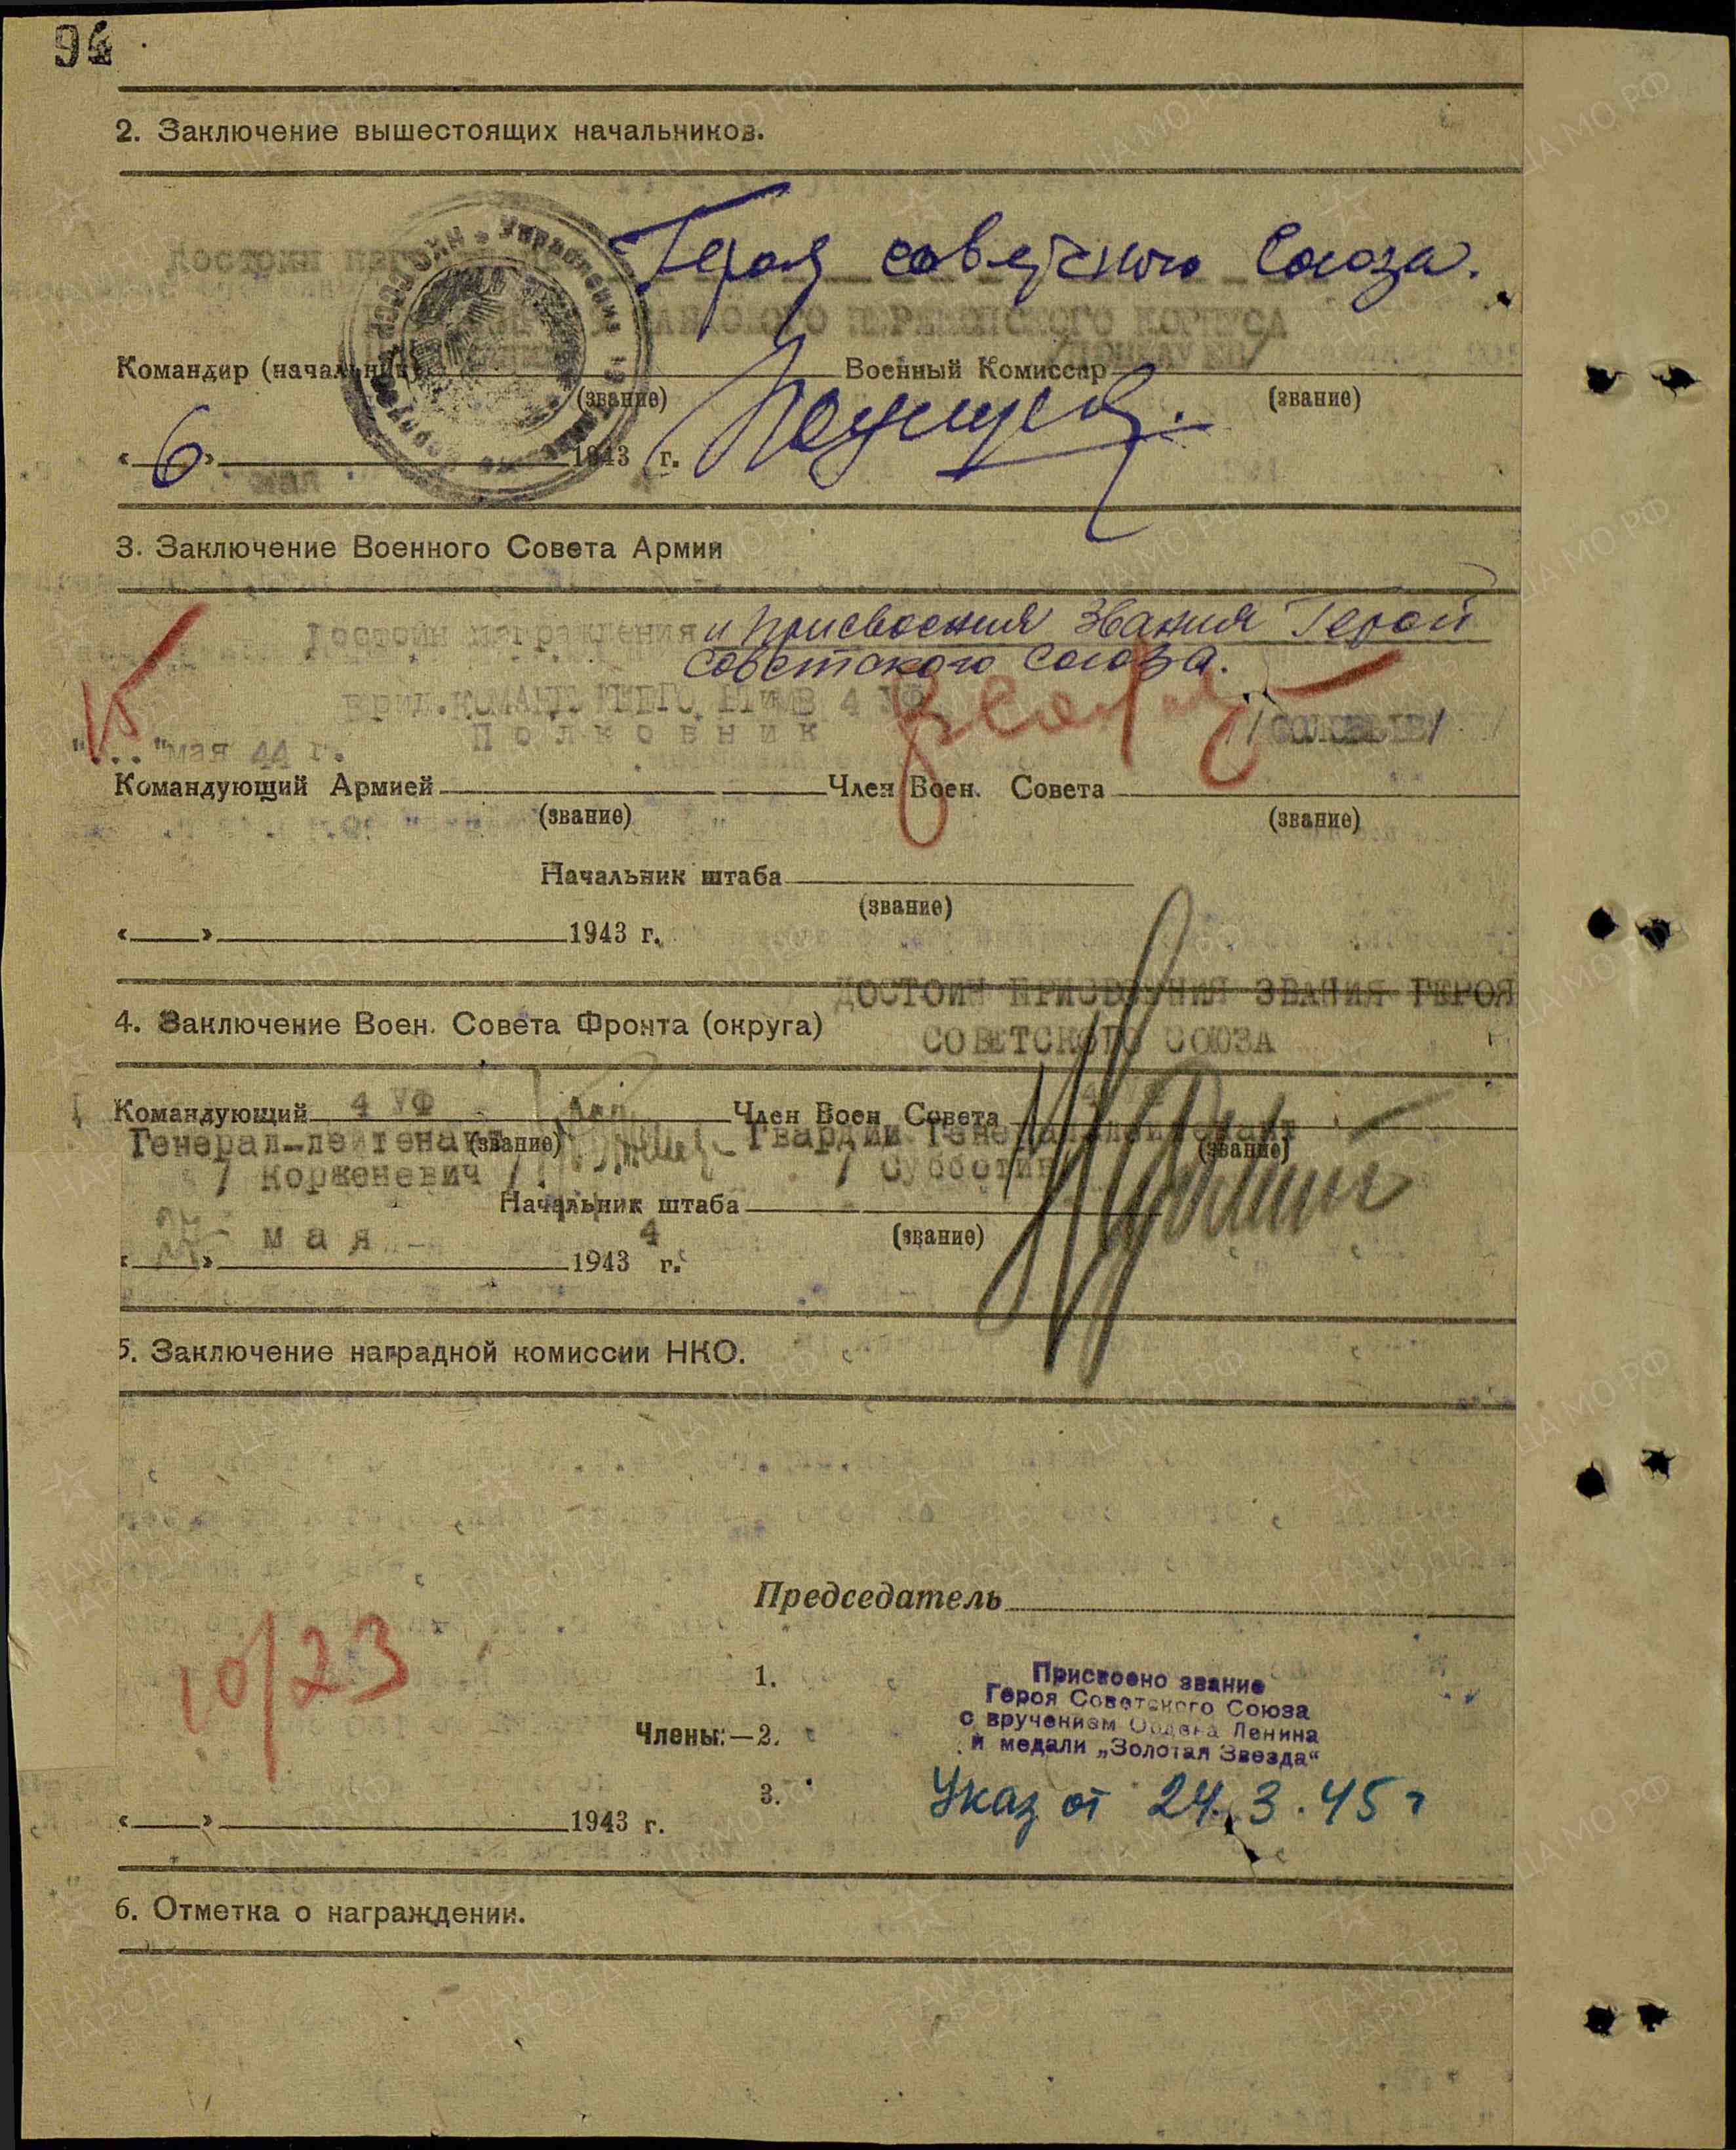 94
2. Заключение вышестоящих начальников.
Достоин
Героя советского Союза.
Командир (начальник) Военный Комиссар
(звание) (звание)
«6» мая 1943 г.
3. Заключение Военного Совета Армии
Достоин награждения и присвоения звания Герой
советского союза.
4 УФ
Полковник
15
"..." мая 44 г.
Командующий Армией Член Воен. Совета
(звание) (звание)
Начальник штаба
(звание)
« » 1943 г.
ДОСТОИН ПРИСВОЕНИЯ ЗВАНИЯ ГЕРОЯ
4. Заключение Воен. Совета Фронта (округа)
СОВЕТСКОГО СОЮЗА
Командующий 4 УФ Член Воен Совета 4
Генерал-лейтенант (звание) Гвардии Генерал-лейтенант (звание)
/ Корженевич / / Субботин
Начальник штаба
(звание)
мая 4
« » 1943 г.
5. Заключение наградной комиссии НКО.
Председатель
10/23
1.
Члены:—2.
3.
Присвоено звание
Героя Советского Союза
с вручением Ордена Ленина
и медали „Золотая Звезда“
Указ от 24.3.45 г
« » 1943 г.
6. Отметка о награждении.
ЦА МО РФ
ПАМЯТЬ
НАРОДА